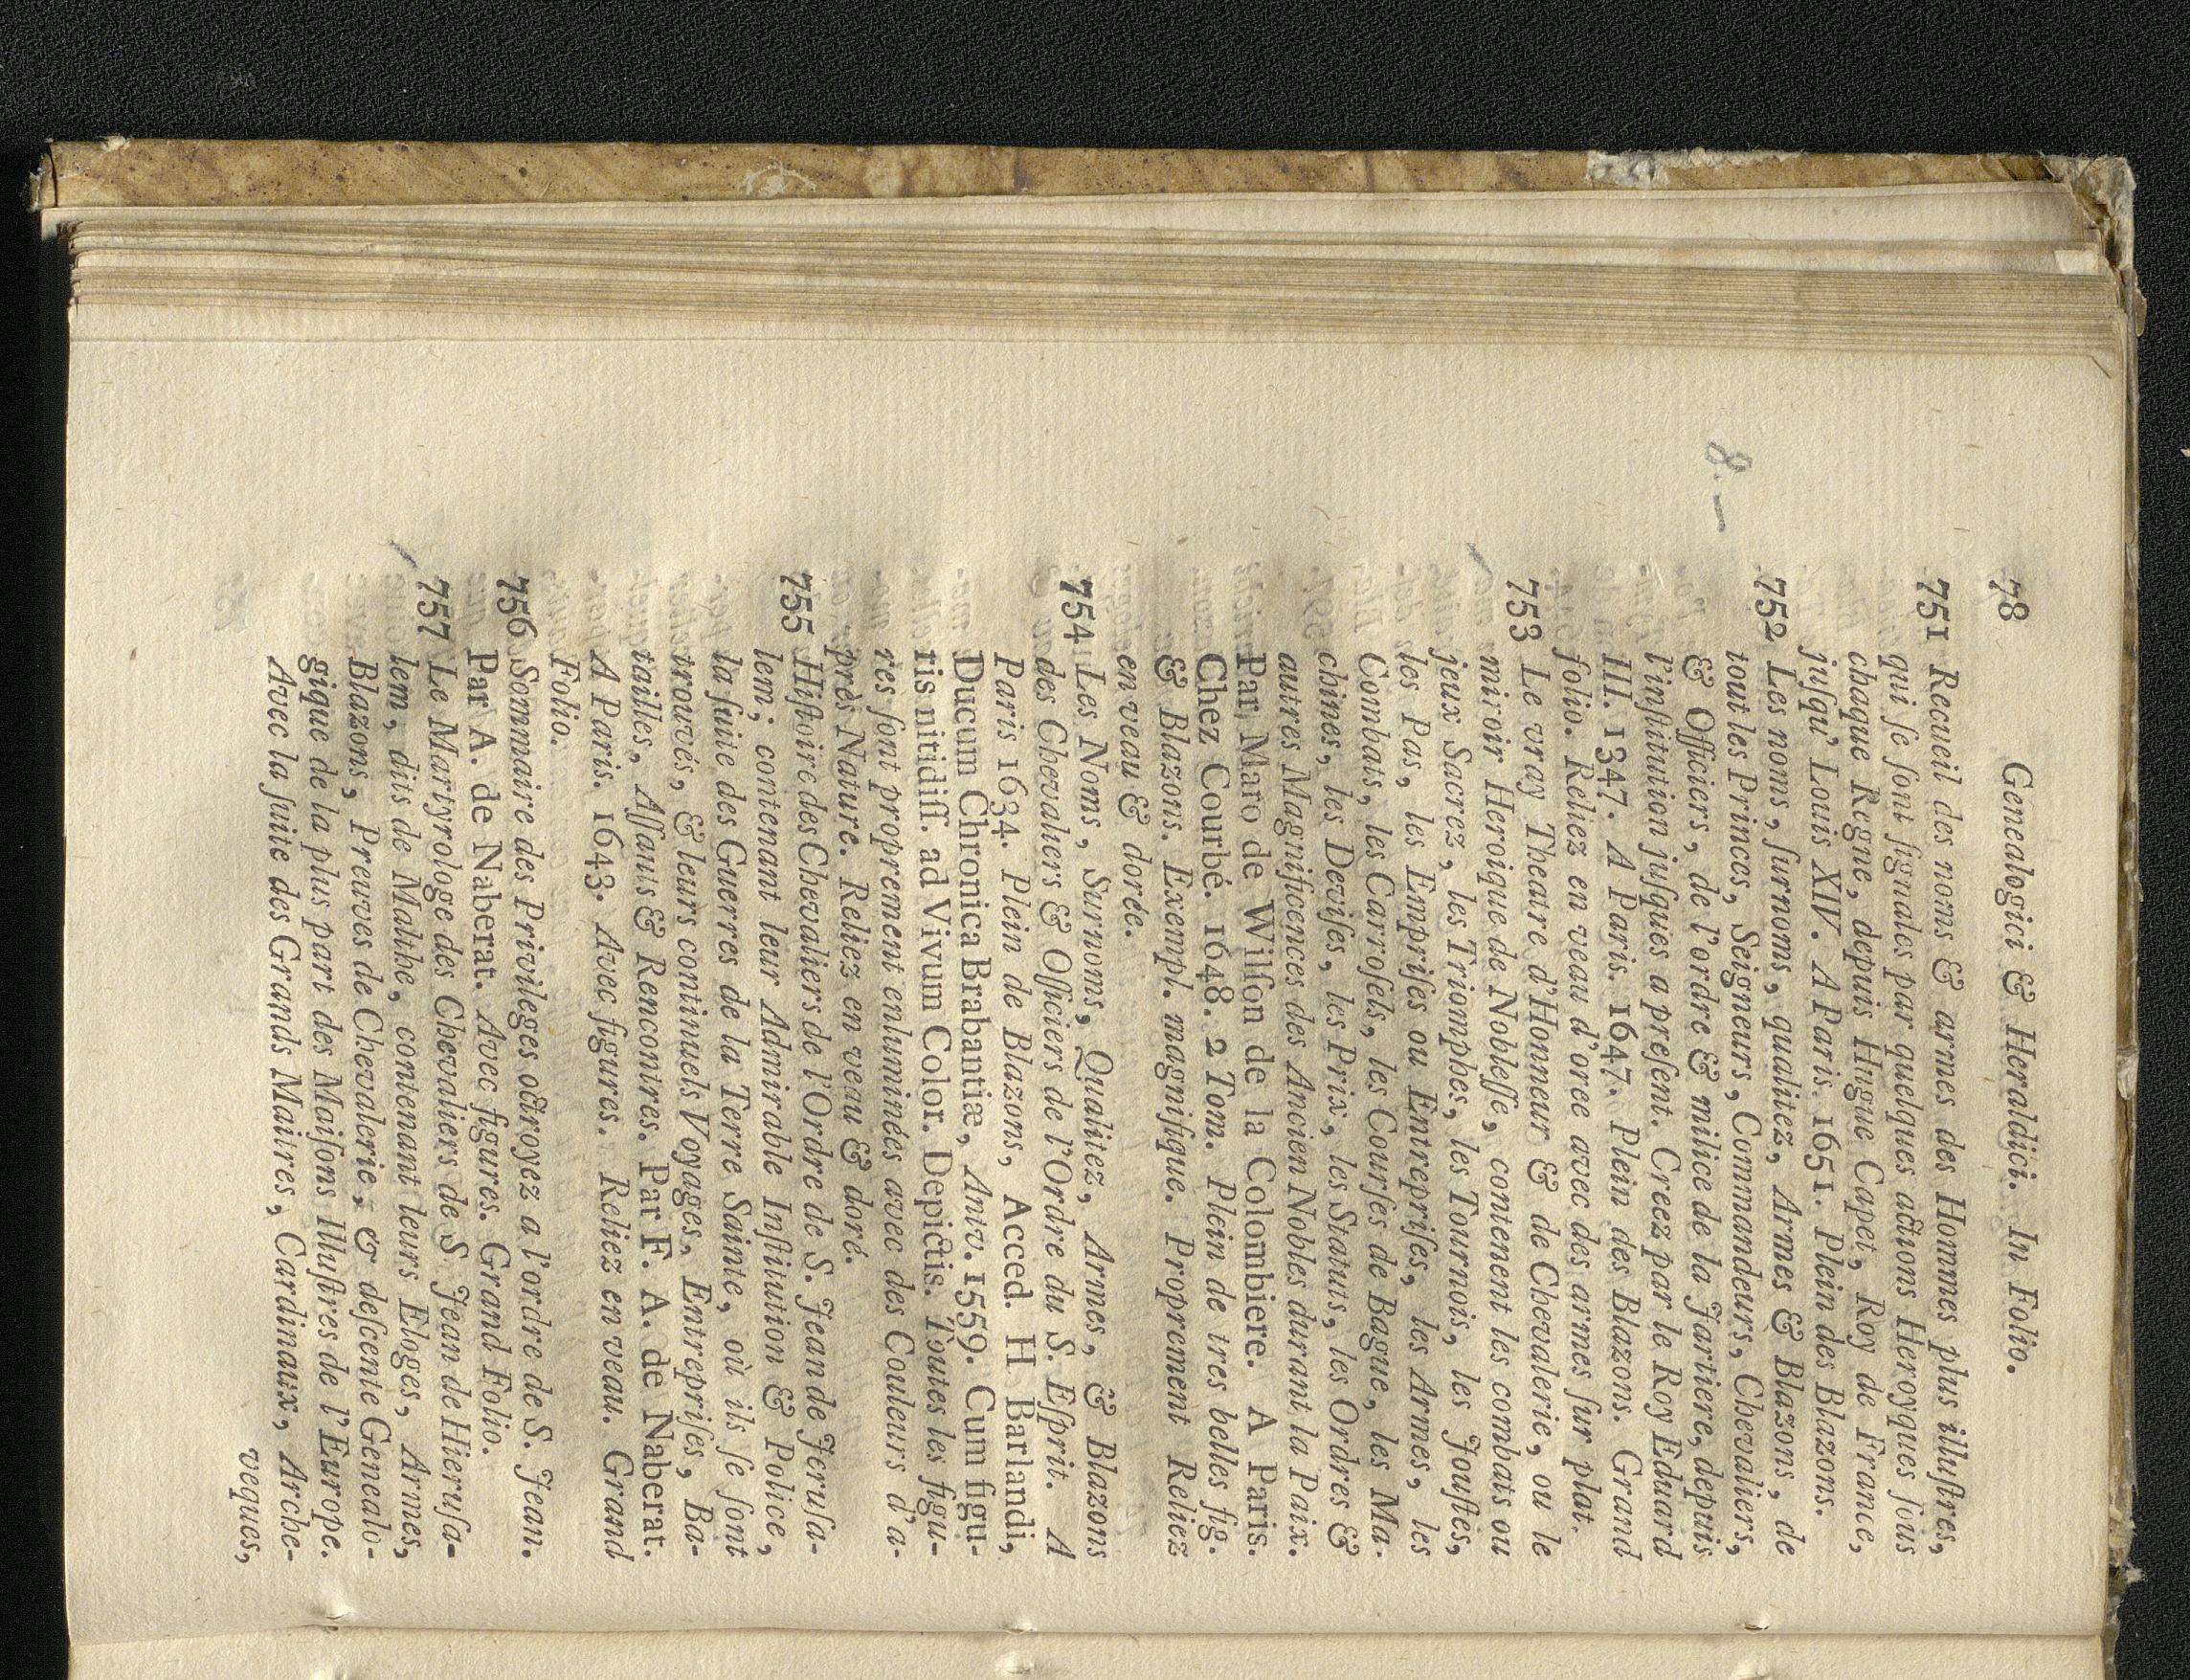 78 Genealogici & Heraldici. In Folio.
751 Recueil des noms & armes des Hommes plus illuſtres,
qui ſe ſont ſignalés par quelques actions Heroyques ſous
chaque Regne, depuis Hugue Capet, Roy de France,
juſqu' Louis XIV. A Paris. 1651. Plein des Blazons.
752 Les noms, ſurnoms, qualitez, Armes & Blazons, de
tout les Princes, Seigneurs, Commandeurs, Chevaliers,
& Officiers, de l'ordre & milice de la Jartiere, depuis
l'inſtitution juſques a preſent. Creez par le Roy Eduard
III. 1347. A Paris. 1647. Plein des Blazons. Grand
folio. Reliez en veau d'oree avec des armes ſur plat.
8.—
753 Le vray Theatre d'Honneur & de Chevalerie, ou le
miroir Heroique de Nobleſſe, contenent les combats ou
jeux Sacrez, les Triomphes, les Tournois, les Jouſtes,
les Pas, les Empriſes ou Entrepriſes, les Armes, les
Combats, les Carroſels, les Courſes de Bague, les Ma-
chines, les Deviſes, les Prix, les Statuts, les Ordres &
autres Magnificences des Ancien Nobles durant la Paix.
Par, Maro de Wilſon de la Colombiere. A Paris.
Chez Courbé. 1648. 2 Tom. Plein de tres belles fig.
& Blazons. Exempl. magnifique. Proprement Reliez
en veau & dorée.
754 Les Noms, Surnoms, Qualitez, Armes, & Blazons
des Chevaliers & Officiers de l'Ordre du S. Eſprit. A
Paris 1634. Plein de Blazons, Acced. H Barlandi,
Ducum Chronica Brabantiæ, Antv. 1559. Cum figu-
ris nitidiſſ. ad Vivum Color. Depictis. Toutes les figu-
res ſont proprement enluminées avec des Couleurs d'a-
près Nature. Reliez en veau & doré.
755 Hiſtoire des Chevaliers de l'Ordre de S. Jean de Jeruſa-
lem; contenant leur Admirable Inſtitution & Police,
la ſuite des Guerres de la Terre Sainte, où ils ſe ſont
trouvés, & leurs continuels Voyages, Entrepriſes, Ba-
tailles, Aſſauts & Rencontres. Par F. A. de Naberat.
A Paris. 1643. Avec figures. Reliez en veau. Grand
Folio.
756 Sommaire des Privileges octroyez a l'ordre de S. Jean.
Par A. de Naberat. Avec figures. Grand Folio.
757 Le Martyrologe des Chevaliers de S Jean de Hieruſa-
lem, dits de Malthe, contenant leurs Eloges, Armes,
Blazons, Preuves de Chevalerie, & deſcente Genealo-
gique de la plus part des Maiſons Illuſtres de l'Europe.
Avec la ſuite des Grands Maitres, Cardinaux, Arche-
veques,